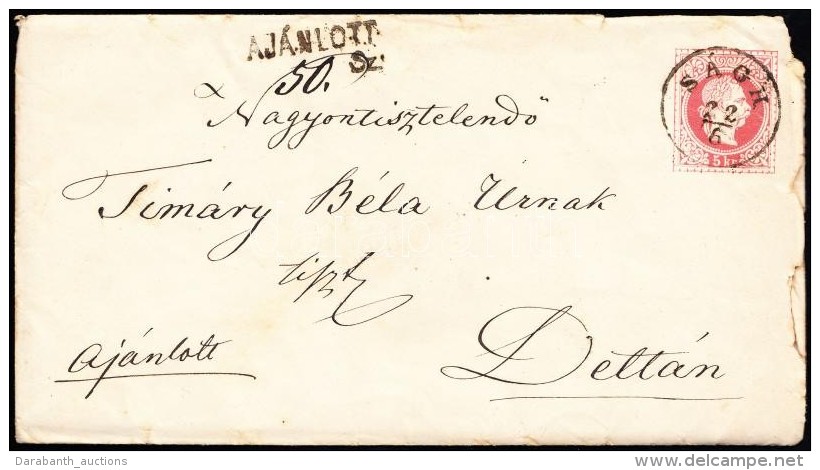 AJÁNLOTT
Sz:
50.
SÁGH
22
6
5 kr
Nagyontisztelendő
Timáry Béla Úrnak
tiszt
Ajánlott
Dettán
Darabanth_auctions
www.delcampe.net